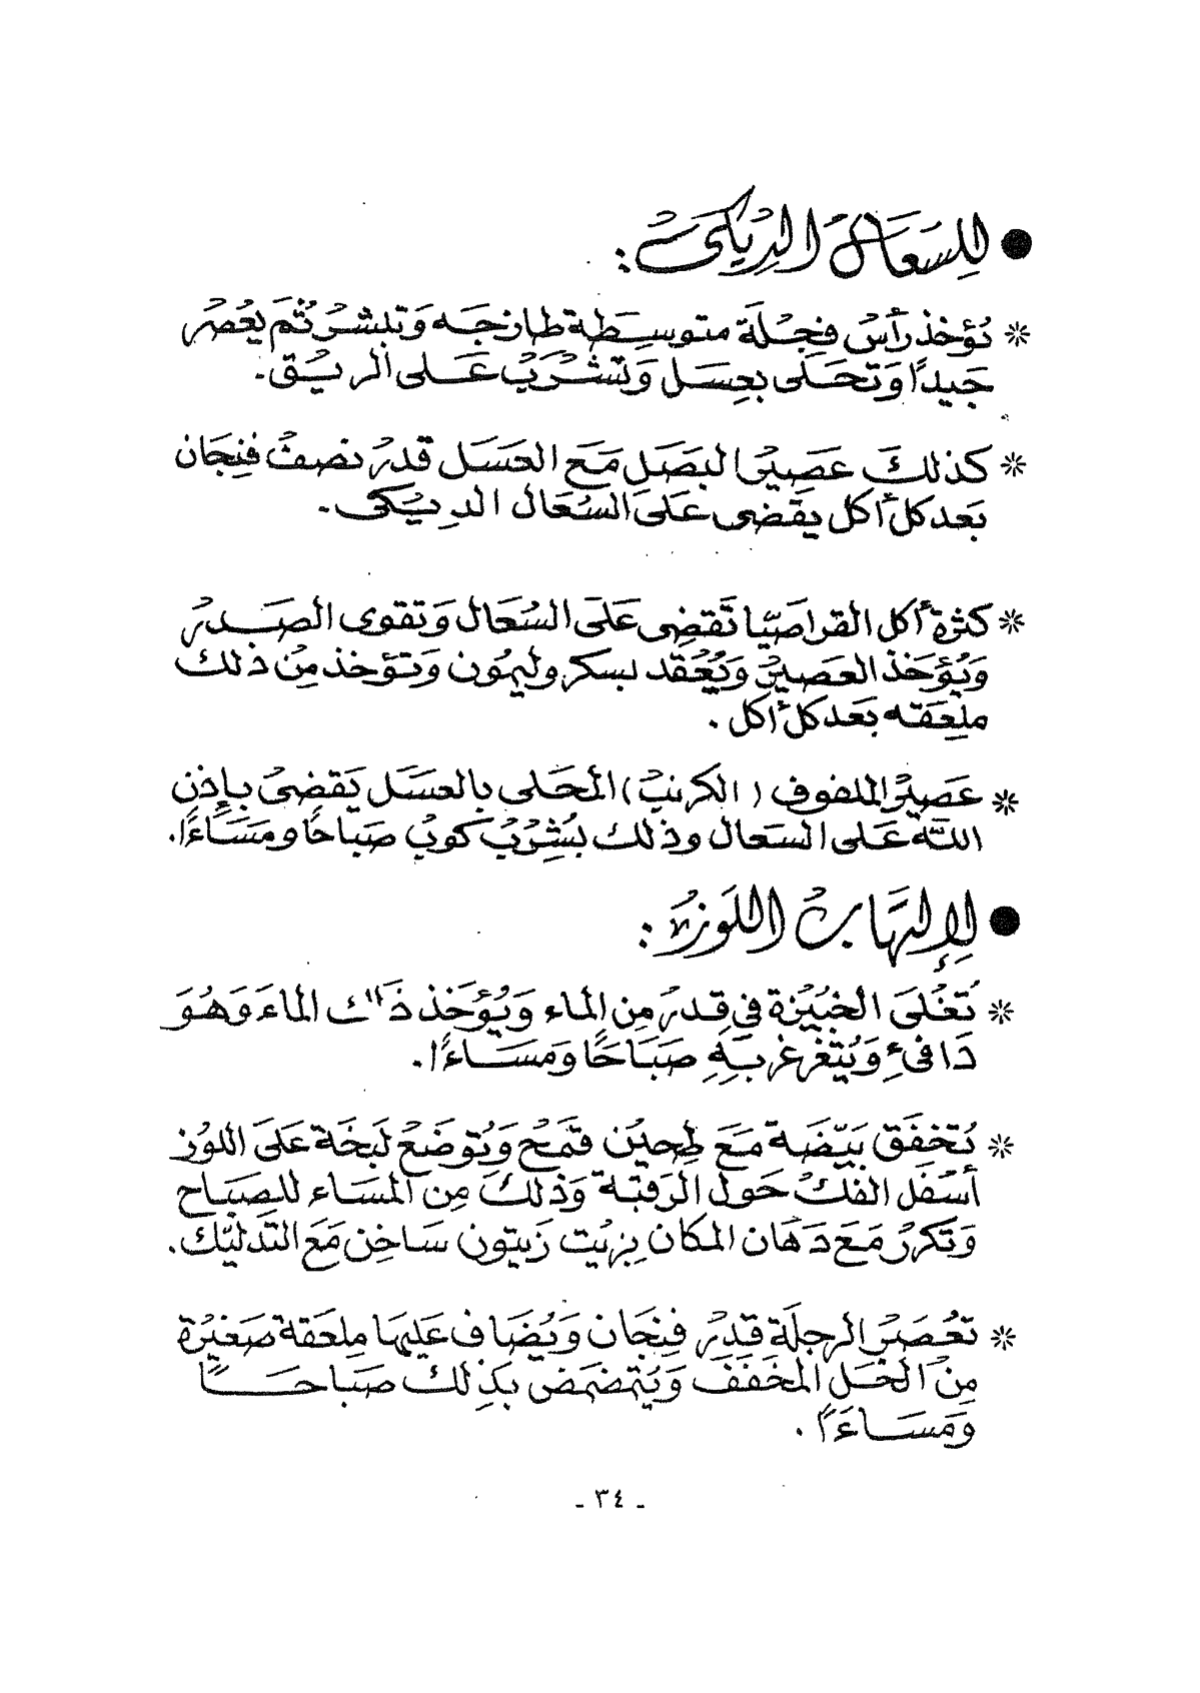 ● لِلسَعَال الدِيكى :
* تُؤخذ رأسُ فجْلَة متوسِطة طازجَه وَتبشرُ ثُمَ يعُصرُ
جَيداً وَتحَلى بعِسَل وَتشْرَبُ عَلى الريْق.
* كذلكَ عَصِيرُ البَصَل مَعَ العَسَل قدرُ نصفُ فنِجَان
بَعدكل أكل يقَضى عَلىَ السُعَال الديكى.
* كثرة أكل القراصَيّا تَقضِى عَلىَ السُعَال وَتقوى الصَدرُ
وَيُؤَخَذ العَصيرُ وَيُعَقد بسكر وليمُون وَتؤخذ مِنُ ذلك
ملعِقه بَعدكل أكل .
* عَصيرُ الملفوف ( الكرنبُ ) المحَلى بالعسَل يَقضىُ بإذنِ
اللّه عَلى السَعال وذلك بشِربُ كوبُ صَباحًا ومَسَاءًا.
● لِإلتهَاب اللَوزُ :
* تُغلىَ الخبيَزة في قِدرُ مِن الماء وَيُؤَخذ ذَاك الماءَ وَهُوَ
دَافىءِ وَيُتغرغر بَهِ صَبَاحًا وَمسَاءًا.
* تُخفَق بَيّضَة مَعَ طحيُن قمَحُ وَتُوضَعُ لَبخَة عَلىَ اللوُز
أسَفل الفكُ حَول الرَقبَة وَذلكَ مِن المسَاء للصِبَاح
وَتكررُ مَعَ دَهَان المكان بِزيُت زَيتون سَاخِن مَعَ التدليّك.
* تعُصَرُ الرجلَة قدرُ فنِجَان وَيُضَاف عَليهَا ملِعَقة صَغيُرة
مِنُ الخَل المخَففَ وَيُتمضمَض بَذِلك صَبَاحًا
وَمَسَاءَاً .
- ٣٤ -